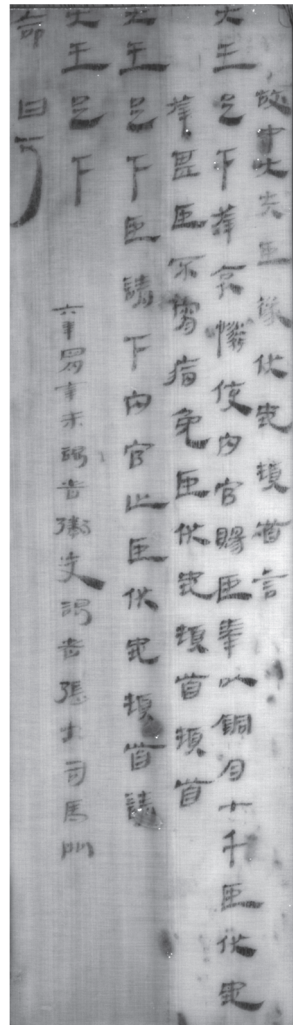 故中大夫臣襐伏地頓首言
大王足下幸哀憐使內官賜臣奉以銅月十千臣伏地
幸臣不宵指免臣伏地頓首頓首
大王足下臣請下內官止臣伏地頓首請
大王足下
六年四月辛未謁者衛受謁者張士司馬門
命曰可